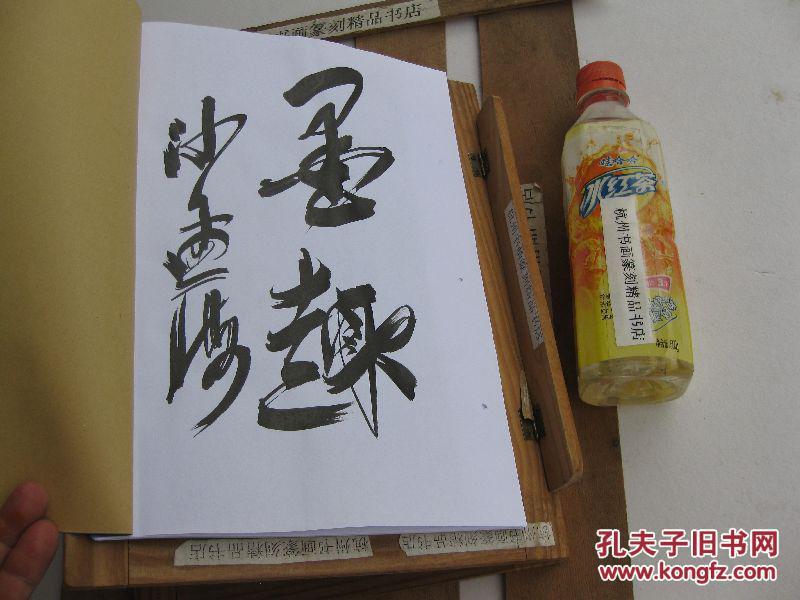 书画篆刻精品书店
墨趣
沙孟海
娃哈哈
冰红茶
杭州书画篆刻精品书店
杭州书画篆刻精品书店
杭州书画篆刻精品书店
孔夫子旧书网
www.kongfz.com